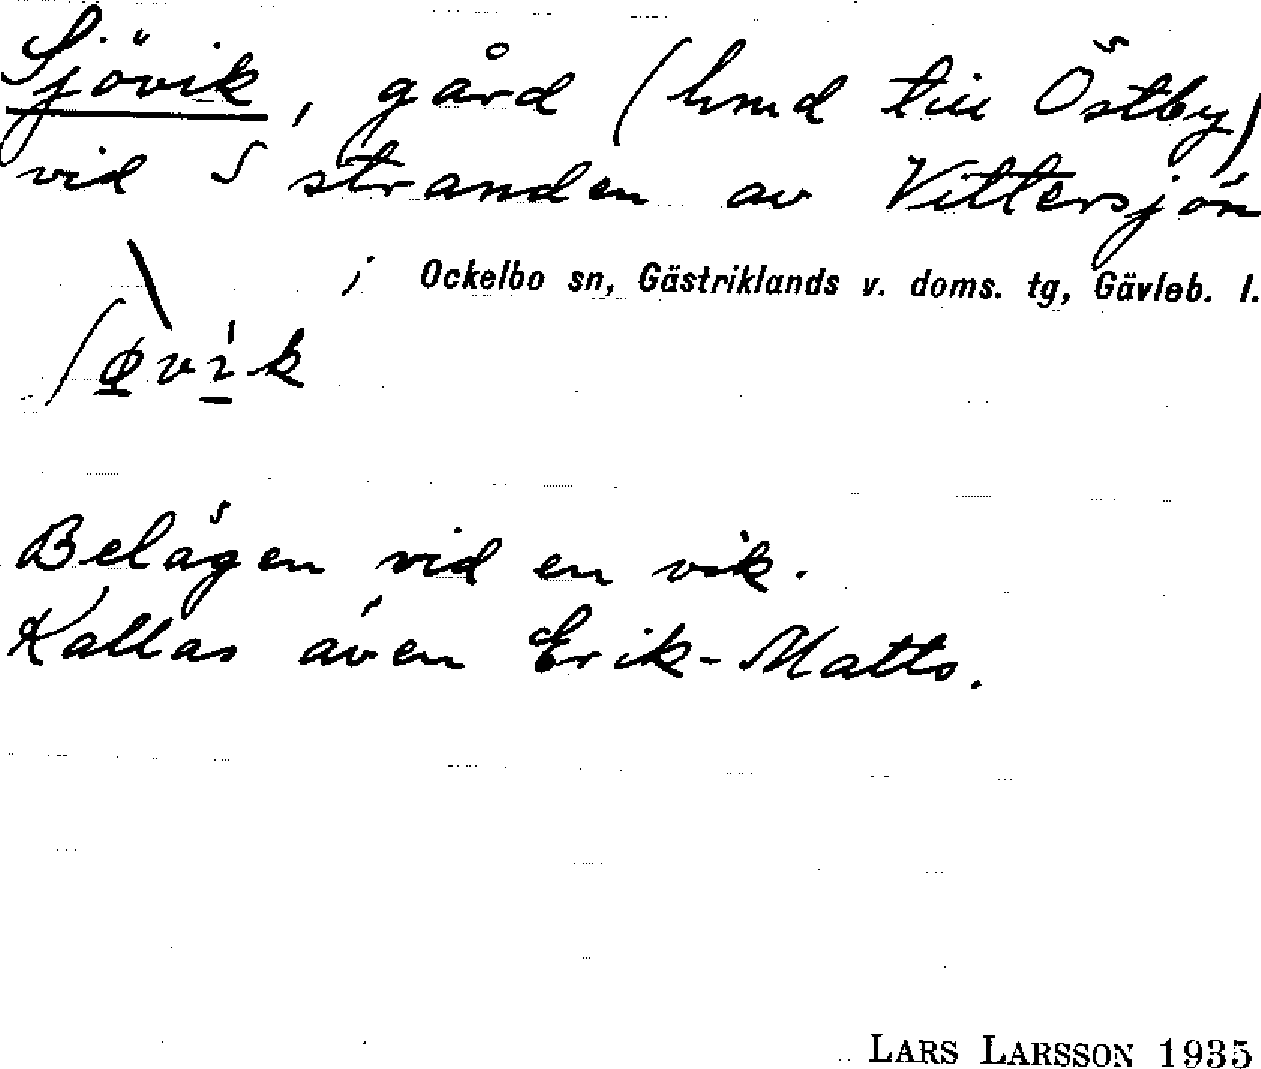 Sjövik, gård (hmd till Östby)
vid S stranden av Vittersjön
i Ockelbo sn, Gästriklands v. doms. tg, Gävleb. l.
ʃøvik
Belägen vid en vik.
Kallas även Erik-Matts.
LARS LARSSON 1935